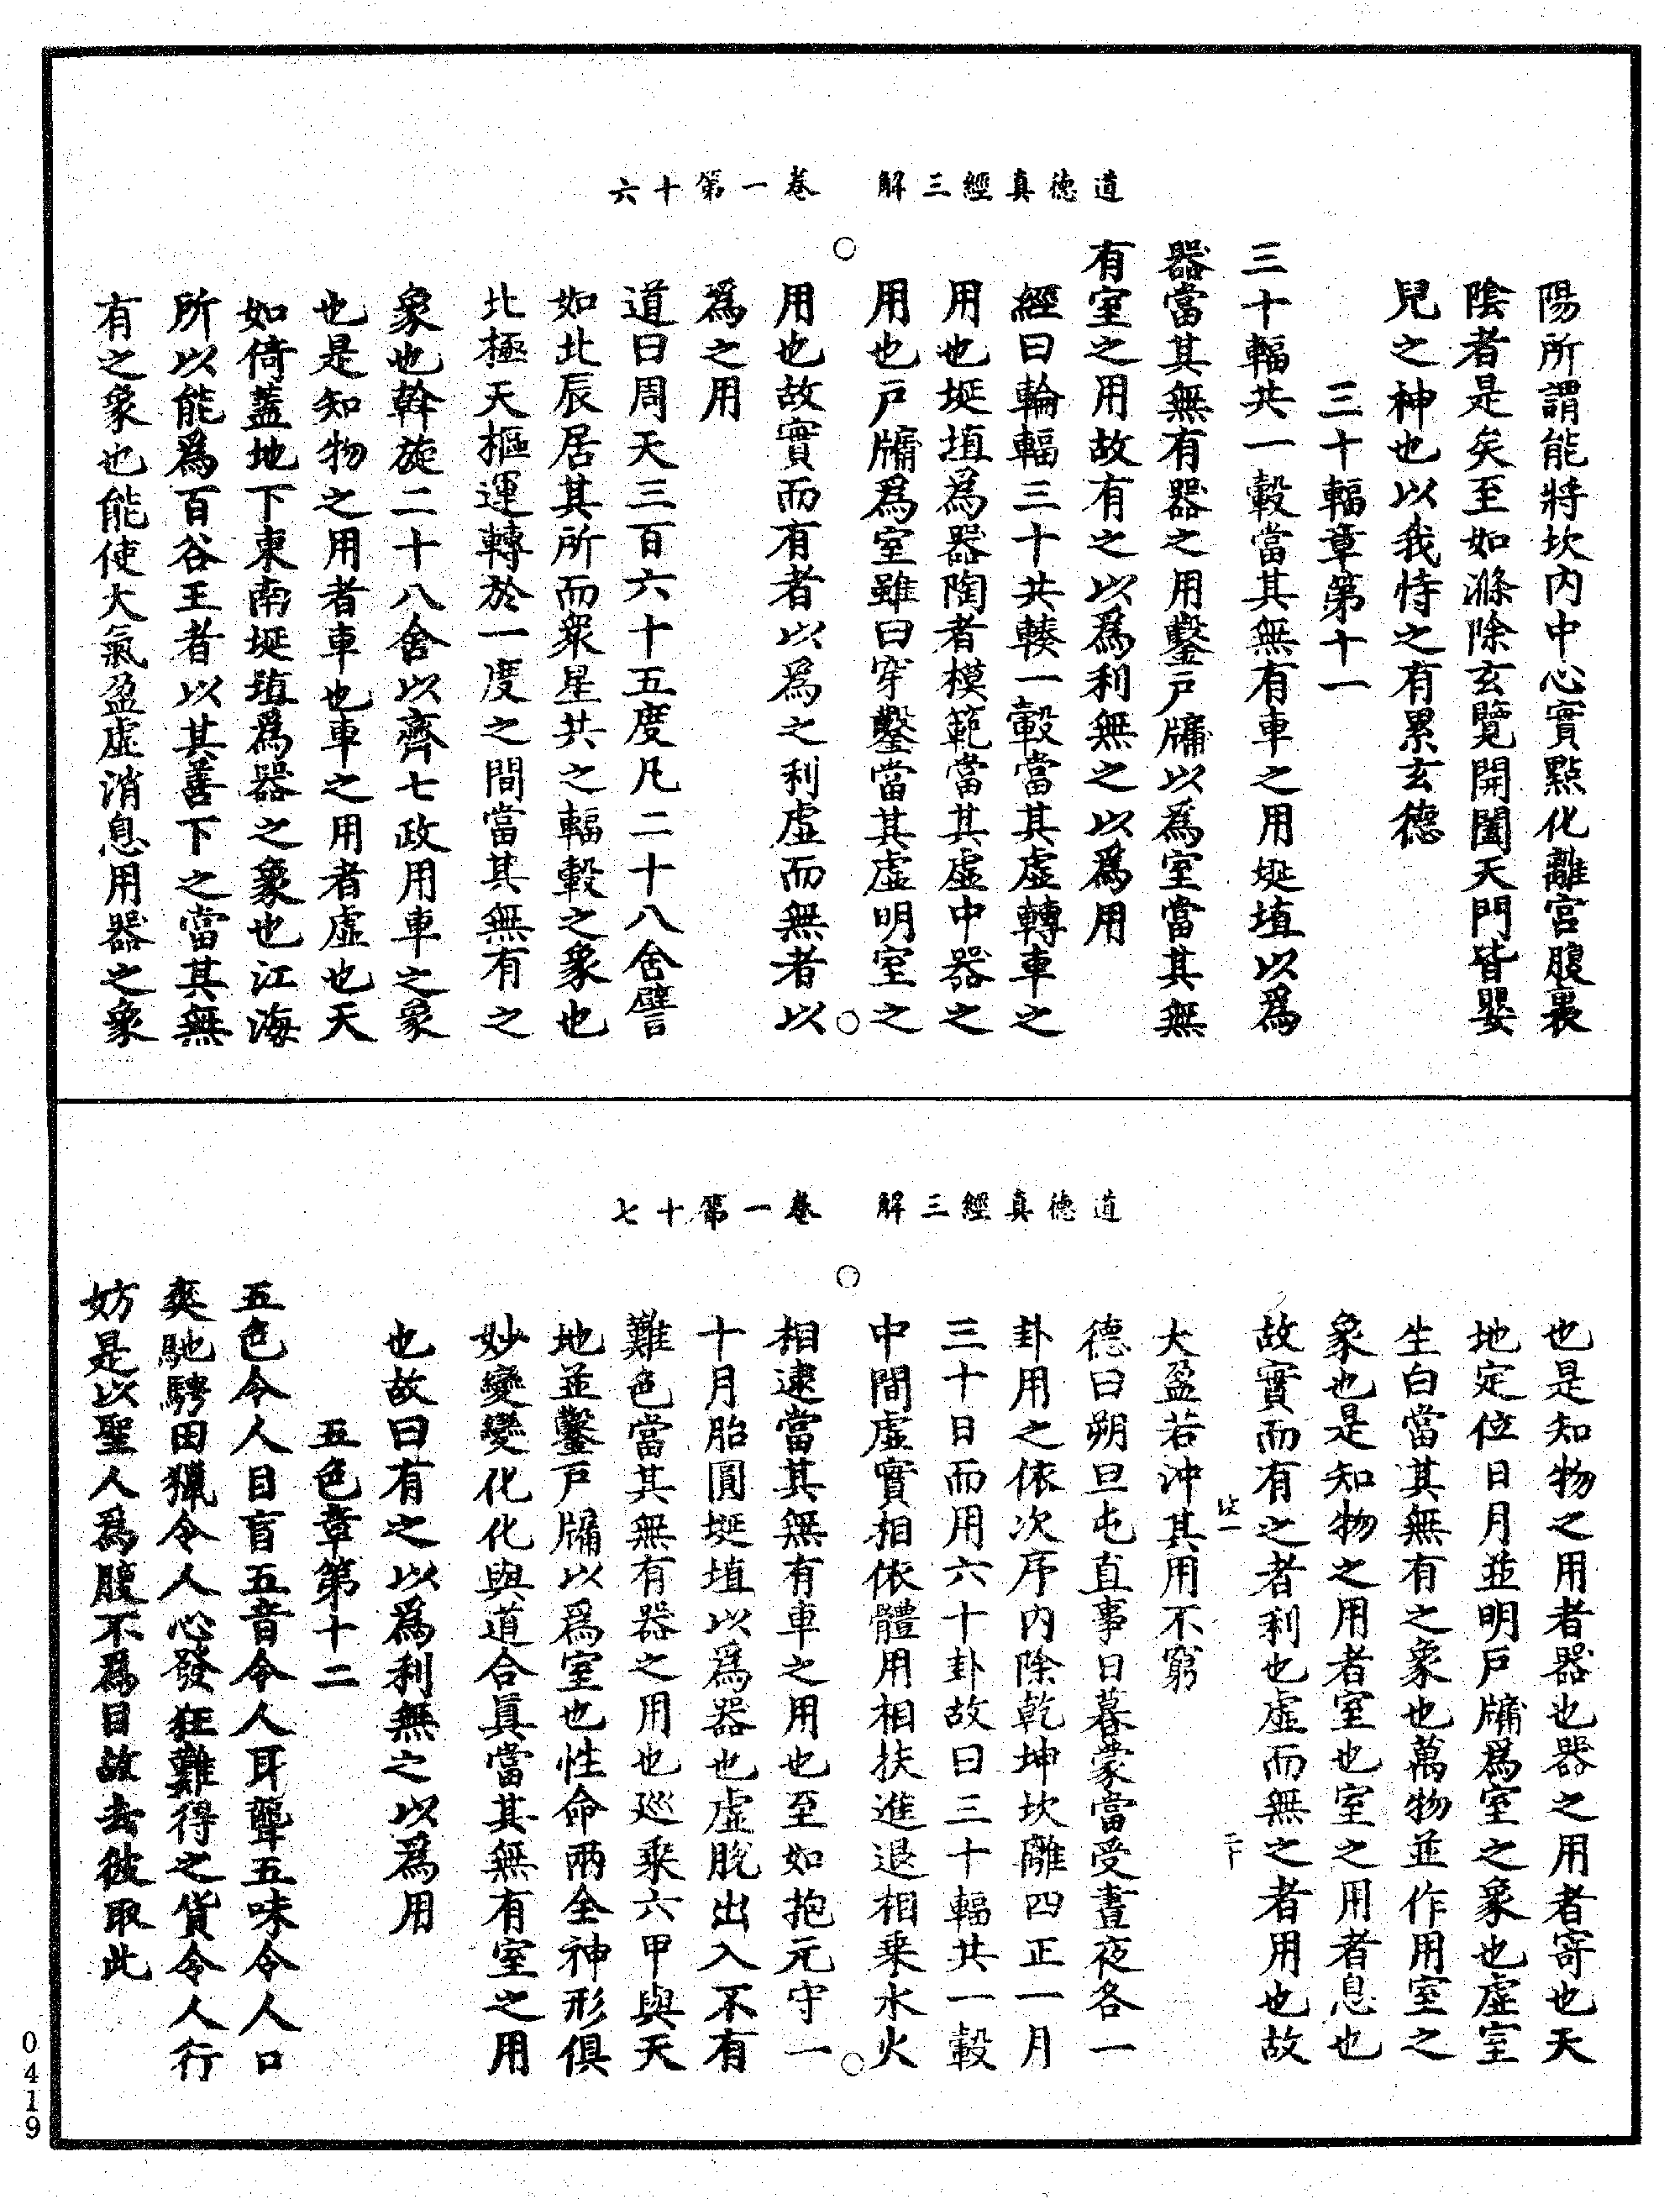 道德真經三解　卷一第十六
陽所謂能將坎內中心實點化離宮腹裏
陰者是矣至如滌除玄覽開闔天門皆嬰
兒之神也以我恃之有累玄德
三十輻章第十一
三十輻共一轂當其無有車之用埏埴以爲
器當其無有器之用鑿戶牖以爲室當其無
有室之用故有之以爲利無之以爲用
經曰輪輻三十共輳一轂當其虛轉車之
用也埏埴爲器陶者模範當其虛中器之
用也戶牖爲室雖曰穿鑿當其虛明室之
用也故實而有者以爲之利虛而無者以
爲之用
道曰周天三百六十五度凡二十八舍譬
如北辰居其所而眾星共之輻轂之象也
北極天樞運轉於一度之間當其無有之
象也幹旋二十八舍以齊七政用車之象
也是知物之用者車也車之用者虛也天
如倚蓋地下東南埏埴爲器之象也江海
所以能爲百谷王者以其善下之當其無
有之象也能使大氣盈虛消息用器之象
道德真經三解　卷一第十七
也是知物之用者器也器之用者寄也天
地定位日月並明戶牖爲室之象也虛室
生白當其無有之象也萬物並作用室之
象也是知物之用者室也室之用者息也
故實而有之者利也虛而無之者用也故
大盈若沖其用不窮
德曰朔旦屯直事日暮蒙當受晝夜各一
卦用之依次序內除乾坤坎離四正一月
三十日而用六十卦故曰三十輻共一轂
中間虛實相依體用相扶進退相乘水火
相逮當其無有車之用也至如抱元守一
十月胎圓埏埴以爲器也虛脫出入不有
難色當其無有器之用也巡乘六甲與天
地並鑿戶牖以爲室也性命兩全神形俱
妙變變化化與道合真當其無有室之用
也故曰有之以爲利無之以爲用
五色章第十二
五色令人目盲五音令人耳聾五味令人口
爽馳騁田獵令人心發狂難得之貨令人行
妨是以聖人爲腹不爲目故去彼取此
0419